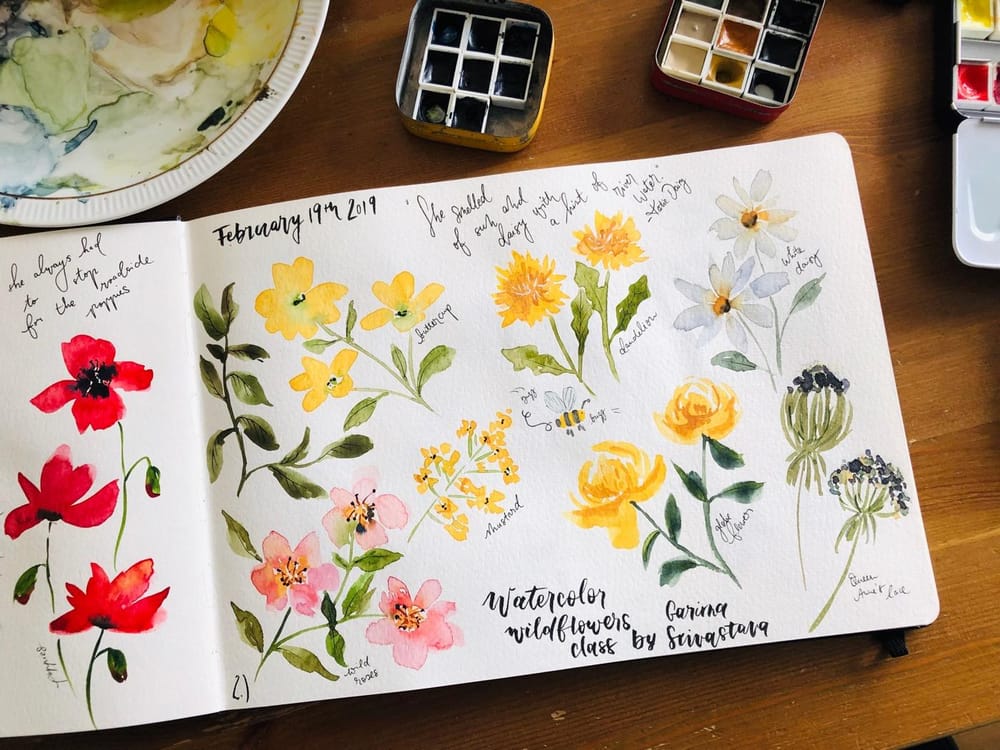 she always had
to stop
for the roadside
poppies
poppies
February 19th 2019
"She smelled
of sun and
daisy with
a hint of river
water."
-Katie Daisy
buttercup
dandelion
white
daisy
buzz
mustard
globe
flower
Queen
Anne's lace
wild
roses
Watercolor
wildflowers
class by Garima
Srivastava
2.)